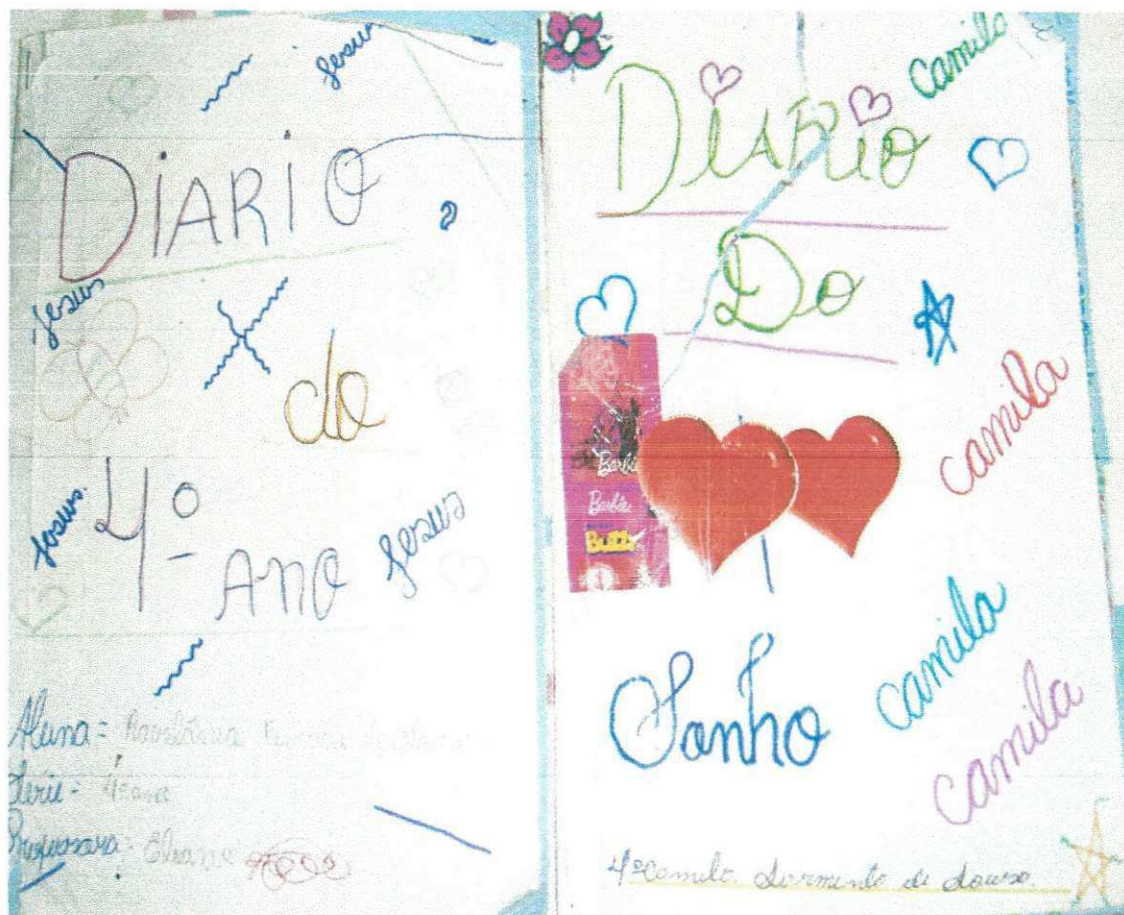 Jesus
DiARIO
Jesus
do
4º
Jesus
Ano
Jesus
Aluna =
Serie = 4º ano
Professora = Eliane
camila
DiARiO
Do
camila
Barbie
Barbie
Sonho
camila
camila
4º Camila Sarmento de Souza